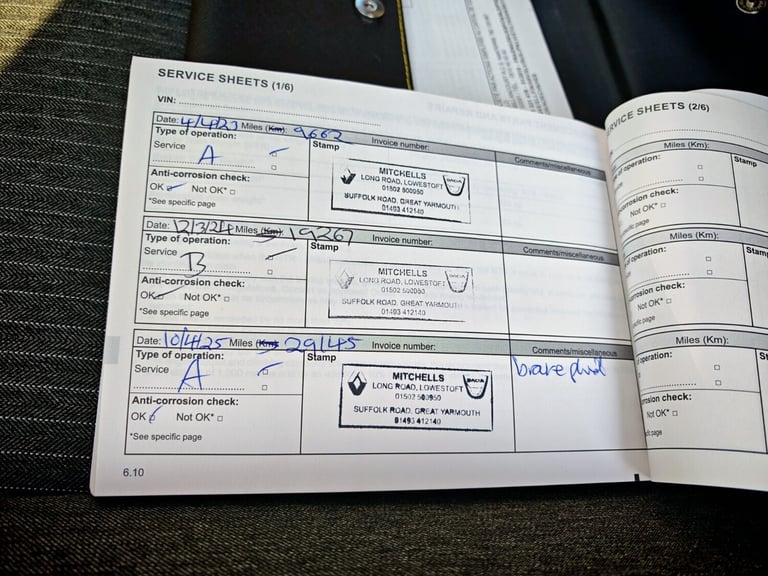 SERVICE SHEETS (1/6)
VIN:
Date: 4/4/23 Miles (Km): 9662 Invoice number: Comments/miscellaneous
Type of operation:
Service A
Stamp
Anti-corrosion check:
OK Not OK*
*See specific page
MITCHELLS
LONG ROAD, LOWESTOFT
01502 500950
SUFFOLK ROAD, GREAT YARMOUTH
01493 412140
DACIA
Date: 12/3/24 Miles (Km): 19267 Invoice number: Comments/miscellaneous
Type of operation:
Service B
Stamp
Anti-corrosion check:
OK Not OK*
*See specific page
MITCHELLS
LONG ROAD, LOWESTOFT
01502 500950
SUFFOLK ROAD, GREAT YARMOUTH
01493 412140
Date: 10/4/25 Miles (Km): 29145 Invoice number: Comments/miscellaneous
Type of operation:
Service A
Stamp
Anti-corrosion check:
OK Not OK*
*See specific page
MITCHELLS
LONG ROAD, LOWESTOFT
01502 500950
SUFFOLK ROAD, GREAT YARMOUTH
01493 412140
DACIA
brake
6.10
RVICE SHEETS (2/6)
Miles (Km):
of operation:
Stamp
corrosion check:
Not OK*
specific page
Miles (Km):
operation:
Stamp
corrosion check:
Not OK*
specific page
Miles (Km):
operation:
Stamp
rosion check:
Not OK*
page